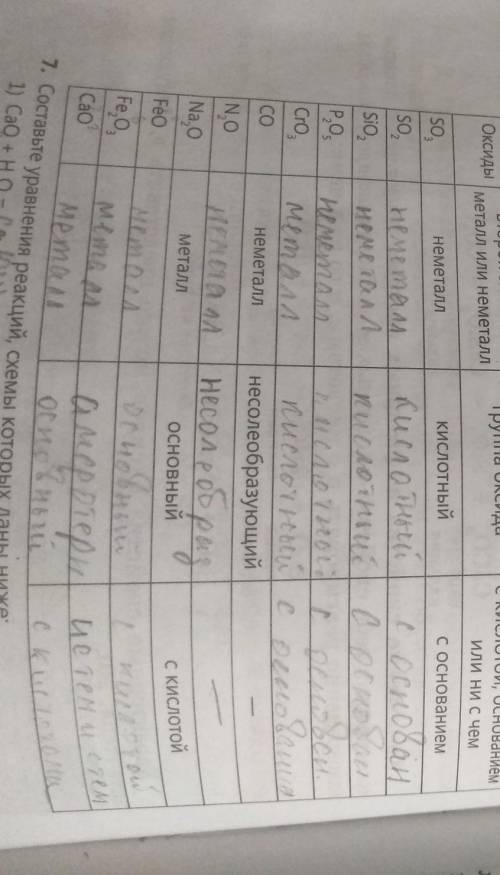 Оксиды металл или неметалл Группа оксида с кислотой, основанием
или ни с чем
SO3 неметалл кислотный с основанием
SO2 неметалл кислотный с основан
SiO2 неметалл кислотный с основан
P2O5 неметалл кислотный с основан
CrO3 металл кислотный с основание
CO неметалл несолеобразующий –
N2O неметалл несолеобраз —
Na2O металл основный с кислотой
FeO металл основный с кислотой
Fe2O3 металл амфотерн и с тем и с тем
CaO металл основный с кислотами
7. Составьте уравнения реакций, схемы которых даны ниже:
1) CaO + H O =